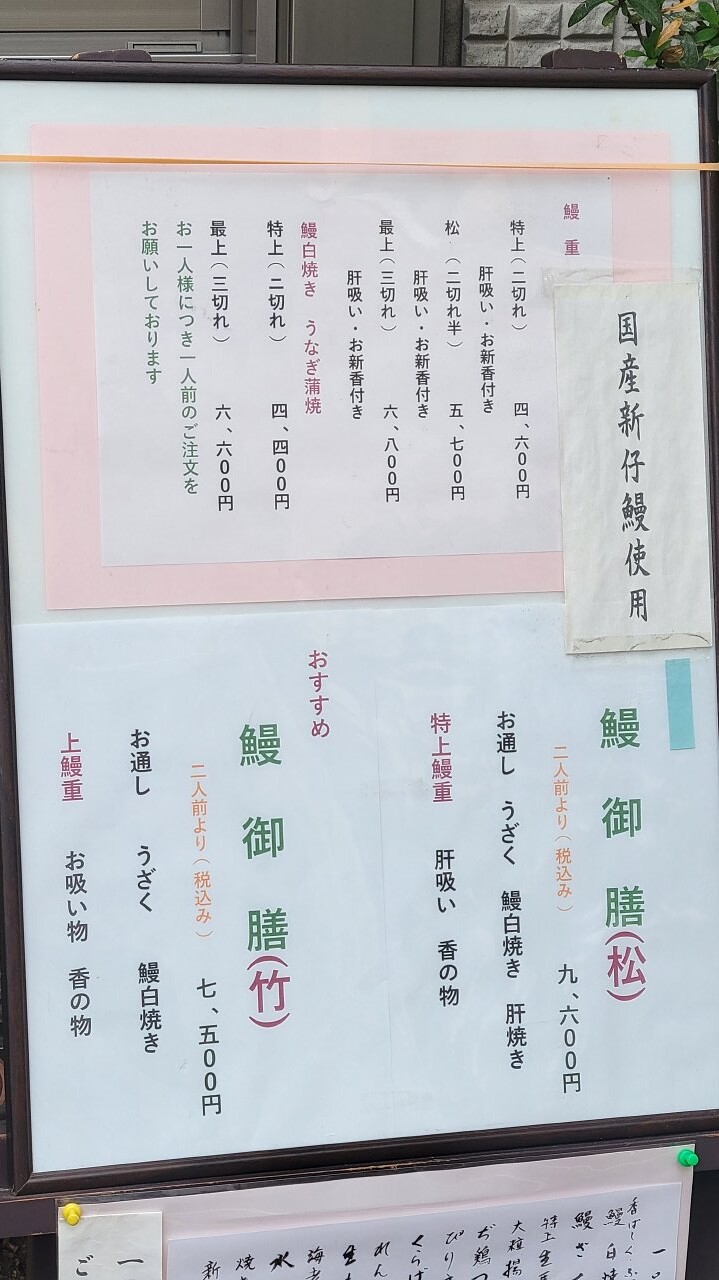 国産新仔鰻使用
鰻重
特上（二切れ） 四、六００円
肝吸い・お新香付き
松（二切れ半） 五、七００円
肝吸い・お新香付き
最上（三切れ） 六、八００円
肝吸い・お新香付き
鰻白焼き うなぎ蒲焼
特上（二切れ） 四、四００円
最上（三切れ） 六、六００円
お一人様につき一人前のご注文を
お願いしております
鰻御膳(松)
二人前より（税込み） 九、六００円
お通し うざく 鰻白焼き 肝焼き
特上鰻重 肝吸い 香の物
おすすめ
鰻御膳(竹)
二人前より（税込み） 七、五００円
お通し うざく 鰻白焼き
上鰻重 お吸い物 香の物
香ばしく
鰻白焼
鰻ざく
特上
大粒揚
ぢ鶏つ
ぴり
くらげ
れん
生
海老
水
焼
新
一
ご